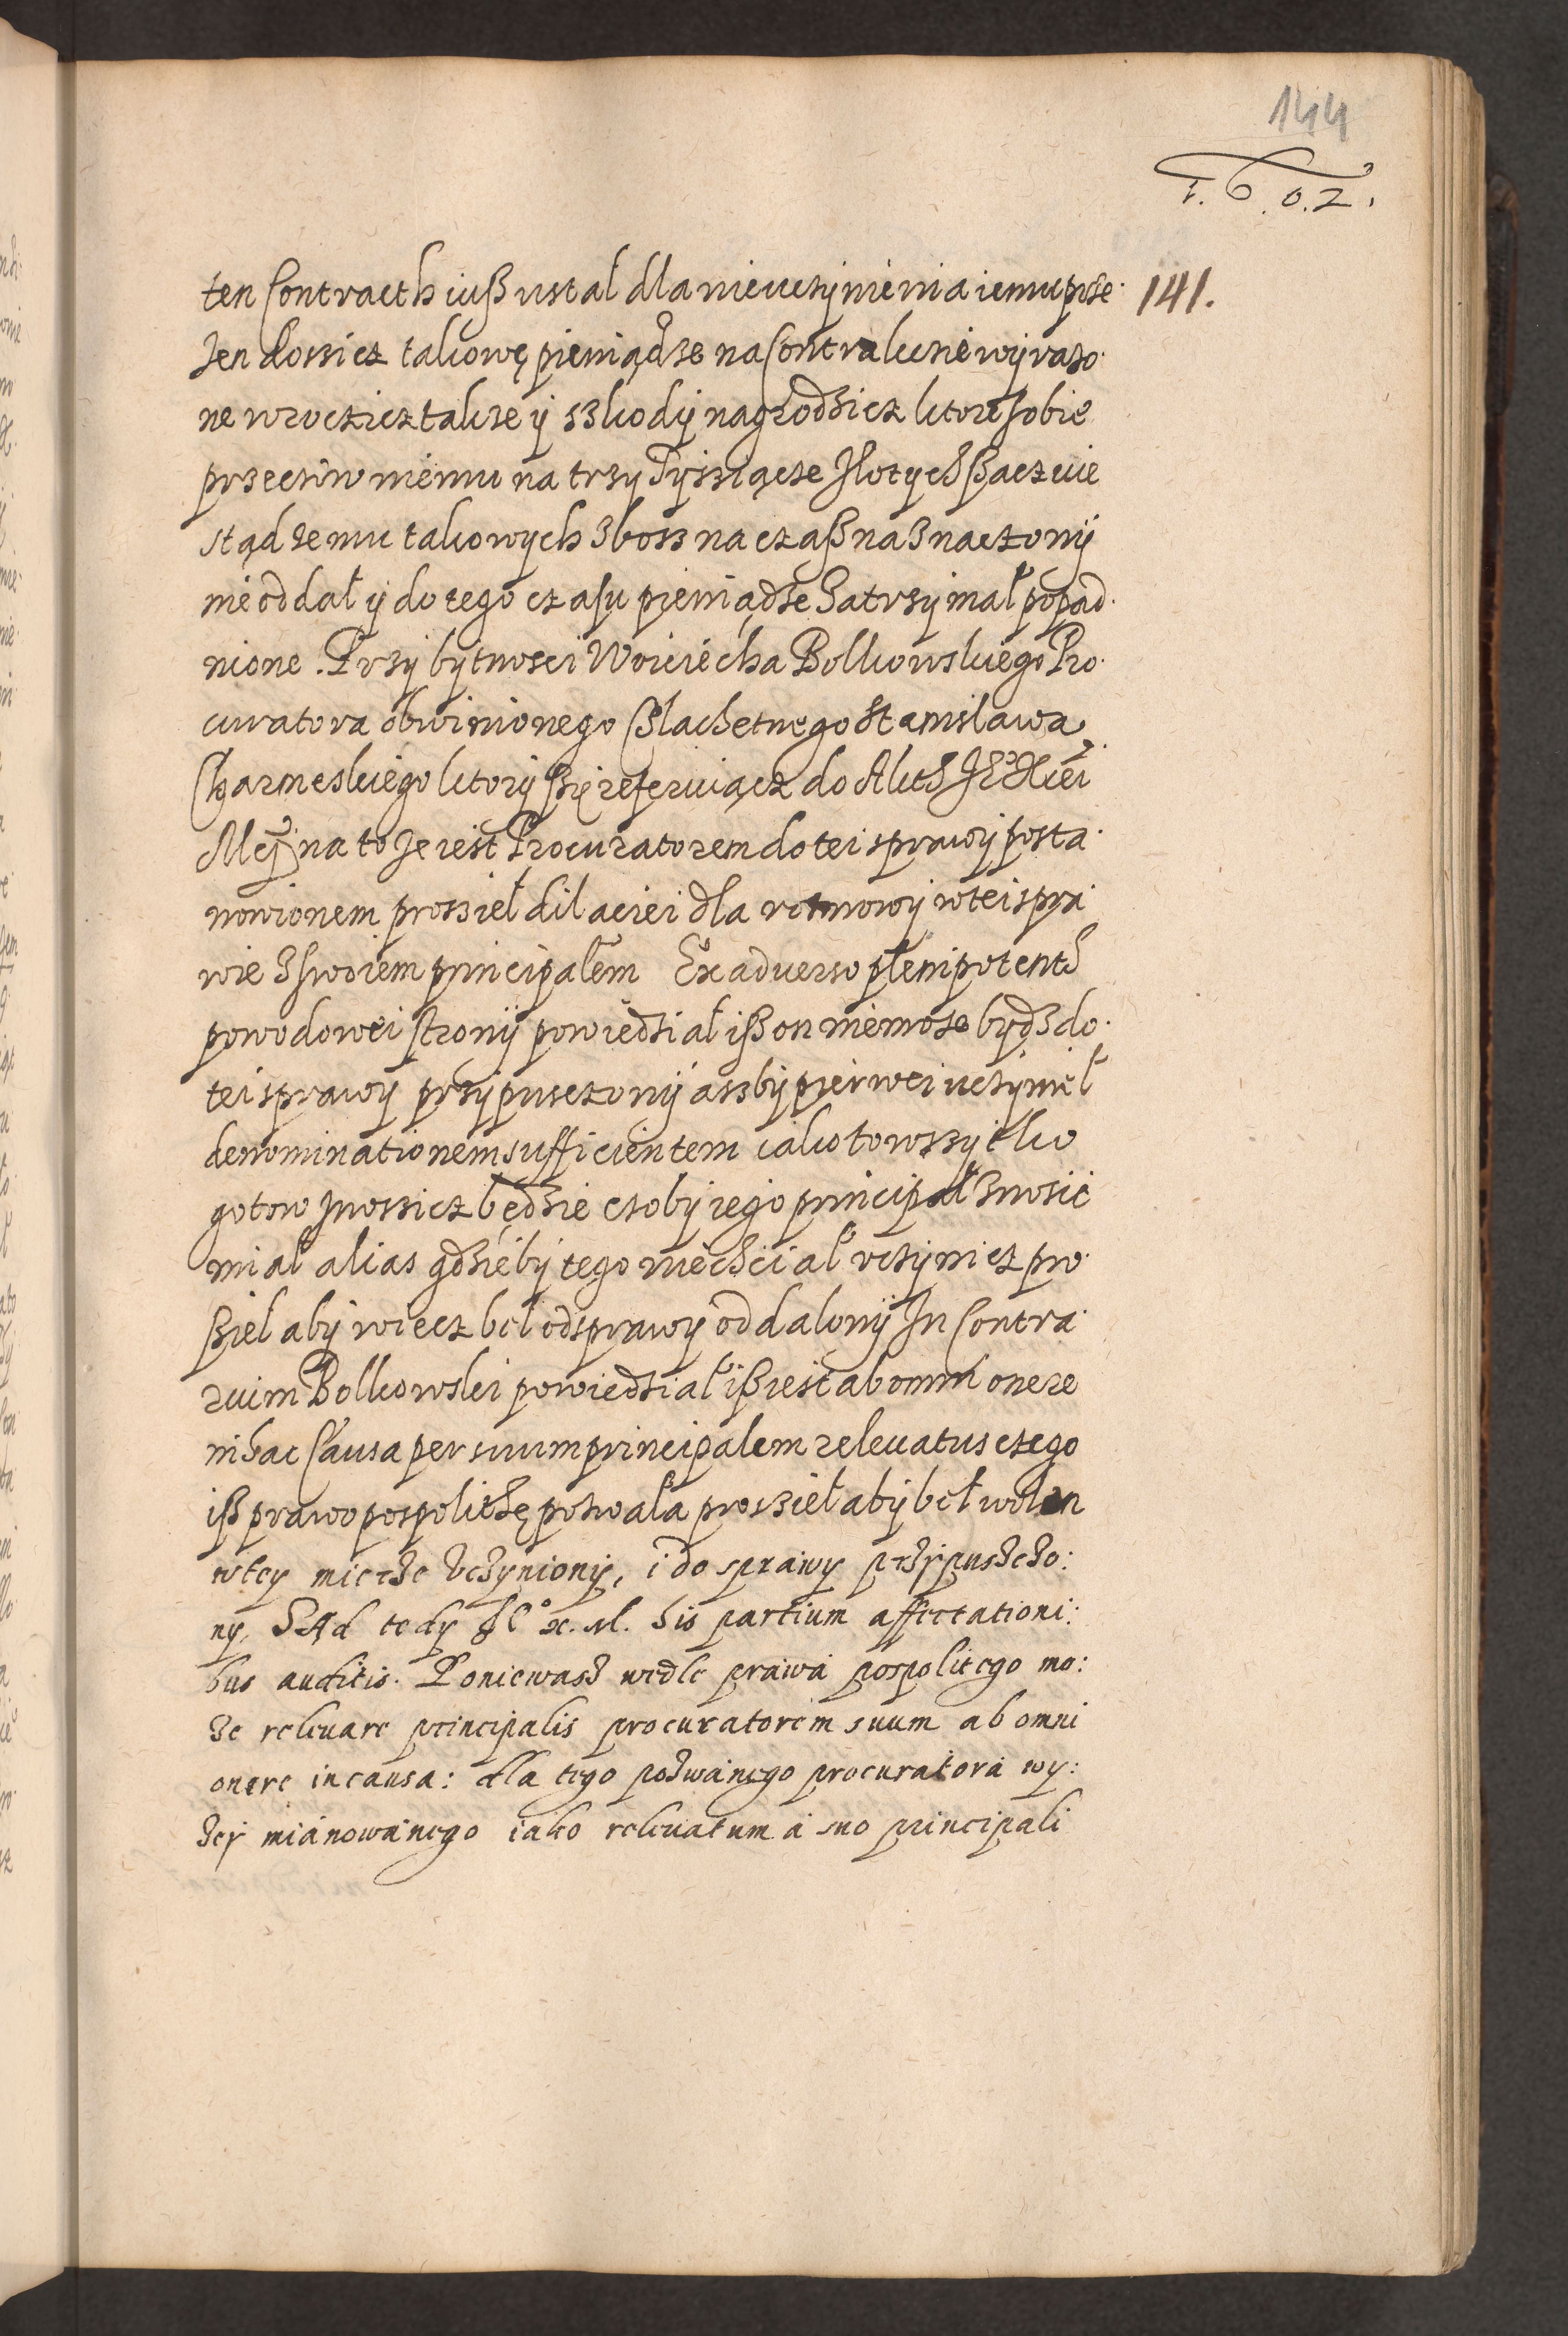 144
1.6.0.2.
141.
ten Contracth iuß ustał dla nieuczynienia iemu prze
zen dossicz takowę pieniądze na Contrakcie wyrażo
ne wroczicz takze y szkody nagrodzicz ktore sobie
przeciw niemu na trzy Tyssiącze Złotych ßaczuie
stąd ze mu takowych zboss na czaß naznaczony
nie oddał y do tego czasu pieniądze zatrzymał popad
nione. Przy bytnosci Woiciecha Bolkowskiego Pro
curatora obwinionego Slachetnego Stanisława
Charmeskiego ktory ßię referuiącz do Akth
na to ze iest Procuratorem do tei sprawy posta
nowionem prossieł dilaciei dla rozmowy w tei spra
wie z swoiem principałem Ex adverso plenipotent
powodowei strony powiedział iß on nie może bydz do
tei sprawy przypusczony aszby pierwei uczynieł
denominationem sufficientem iako to wssytko
gotow znossicz będzie czoby iego principał znosić
miał alias gdzieby tego nie chciał uczynicz pro
ßieł aby wiecz beł od sprawy oddalony In Contra
rium Bolkowski powiedział iß iest ab omni onere
in hac Causa per suum principalem relevatus czego
iß prawo pospolithę pozwala prossieł aby beł wolen
w tey mierze uczyniony, i do sprawy przypuszczo:
ny, Sąd tedy his partium affectationi:
bus auditis. Poniewasz wedle prawa pospolitego mo:
że relevare principalis procuratorem suum ab omni
onere in causa: dla tego pozwanego procuratora wy:
zey mianowanego iako relevatum a suo principali